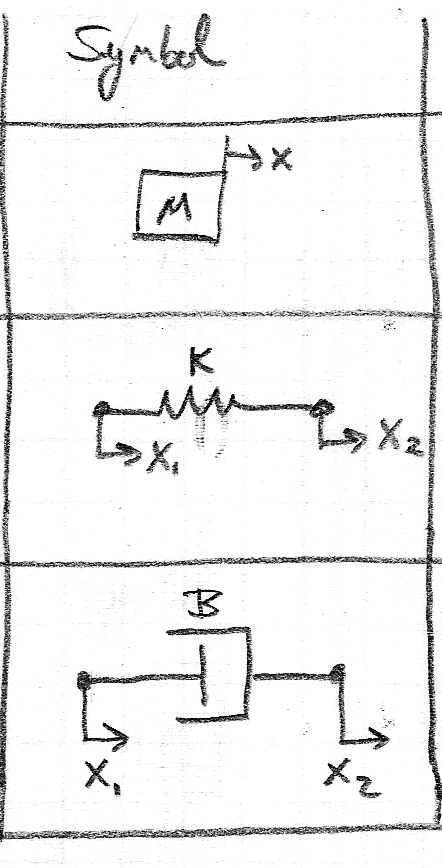 Symbol
x
M
K
X₁
X₂
B
X₁
X₂